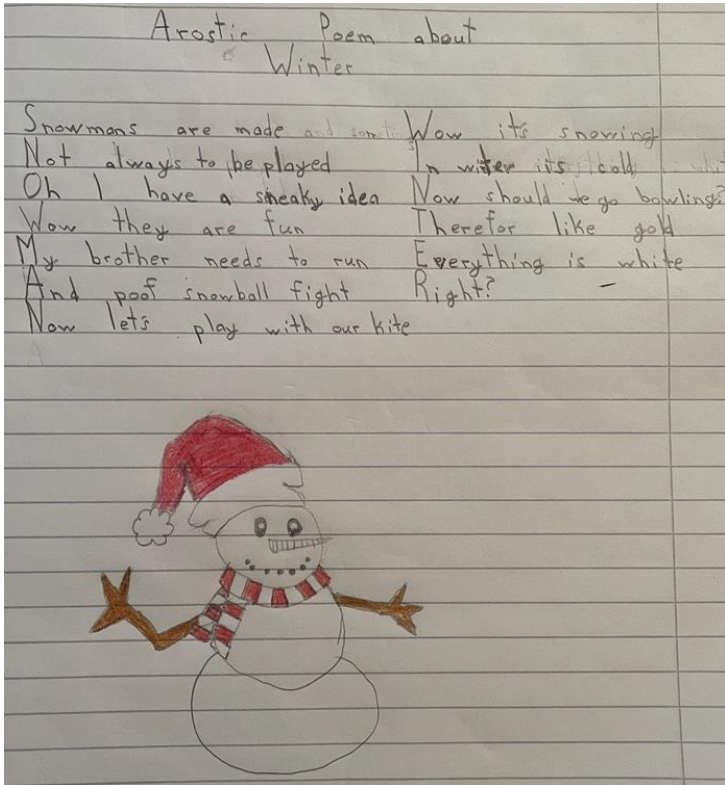 Arostic Poem about
Winter
Snowmans are made
Not always to be played
Oh I have a sneaky idea
Wow they are fun
My brother needs to run
And poof snowball fight
Now let's play with our kite
Wow it's snowing
In witer its cold
Now should we go bowling?
Therefor like gold
Everything is white
Right?